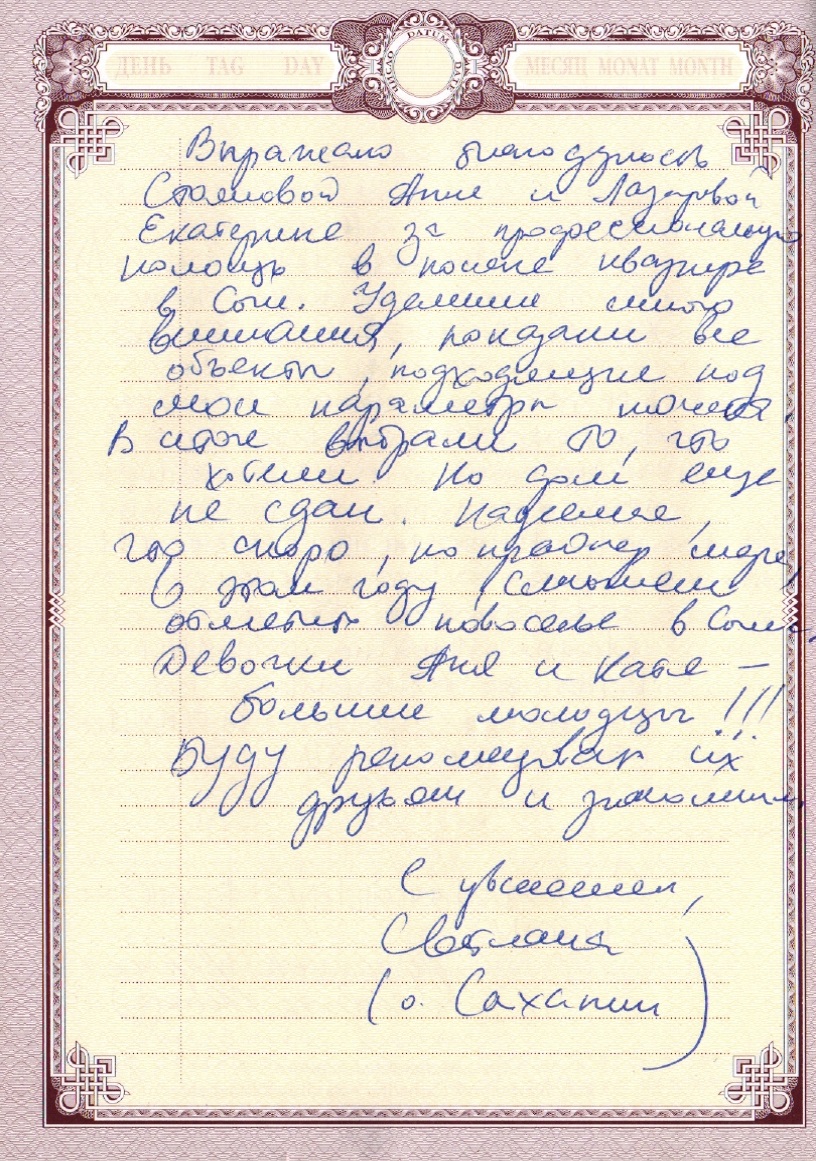 ДЕНЬ TAG DAY ЧИСЛО DATUM DATE МЕСЯЦ MONAT MONTH
Выражаю благодарность
Анне и Лазаревой
Екатерине за профессиональную
помощь в поиске квартиры
в Сочи. Уделили много
внимания, показали все
объекты, подходящие под
мои параметры
В итоге выбрали то, что
хотели. Но дом еще
не сдан. Надеемся,
что скоро, по крайней мере,
в этом году сможем
отметить новоселье в Сочи.
Девочки Аня и Катя —
большие молодцы!!!
Буду рекомендовать их
друзьям и знакомым.
С уважением,
Светлана
(о. Сахалин)